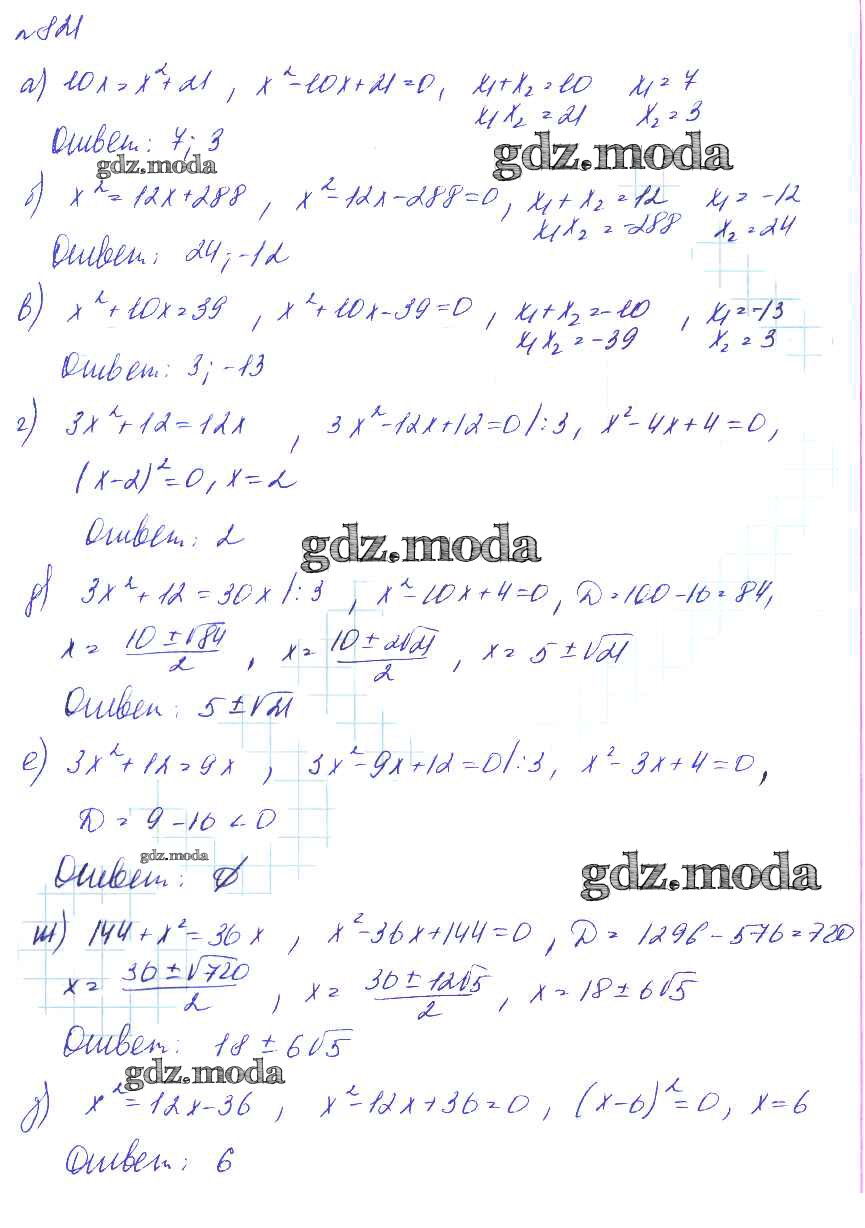 №821
а) 10x = x² + 21 , x² - 10x + 21 = 0, x₁ + x₂ = 10 x₁ = 7
x₁x₂ = 21 x₂ = 3
Ответ: 7; 3
gdz.moda gdz.moda
б) x² = 12x + 288 , x² - 12x - 288 = 0, x₁ + x₂ = 12 x₁ = -12
x₁x₂ = -288 x₂ = 24
Ответ: 24; -12
в) x² + 10x = 39 , x² + 10x - 39 = 0 , x₁ + x₂ = -10 , x₁ = -13
x₁x₂ = -39 x₂ = 3
Ответ: 3; -13
г) 3x² + 12 = 12x , 3x² - 12x + 12 = 0 /:3, x² - 4x + 4 = 0,
(x-2)² = 0, x = 2
Ответ: 2
gdz.moda
д) 3x² + 12 = 30x /:3 , x² - 10x + 4 = 0, D = 100 - 16 = 84,
x = (10 ± √84)/2 , x = (10 ± 2√21)/2 , x = 5 ± √21
Ответ: 5 ± √21
е) 3x² + 12 = 9x , 3x² - 9x + 12 = 0 /:3, x² - 3x + 4 = 0,
D = 9 - 16 < 0
gdz.moda
Ответ: ∅
gdz.moda
ж) 144 + x² = 36x , x² - 36x + 144 = 0 , D = 1296 - 576 = 720
x = (36 ± √720)/2 , x = (36 ± 12√5)/2 , x = 18 ± 6√5
Ответ: 18 ± 6√5
gdz.moda
з) x² = 12x - 36 , x² - 12x + 36 = 0 , (x-6)² = 0, x = 6
Ответ: 6